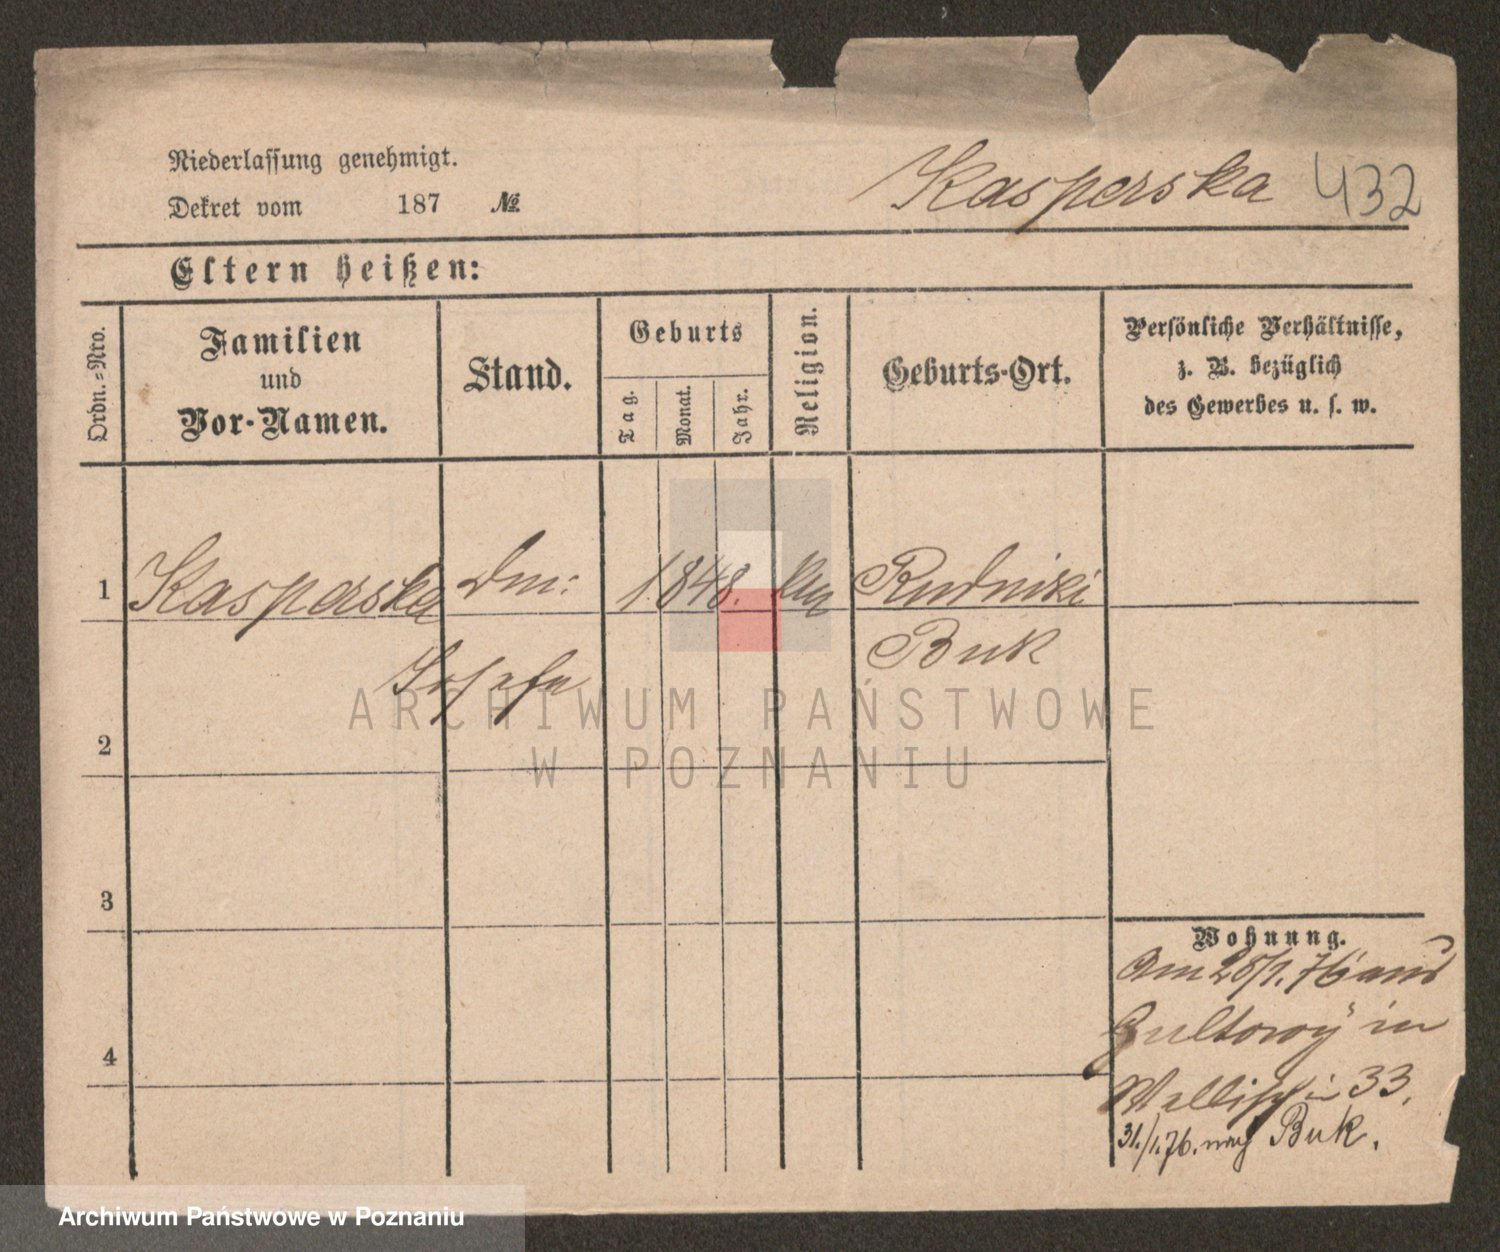 Niederlassung genehmigt.
Dekret vom 187 №
Kasperska 432
Eltern heißen:
Ordn.-Nro.
Familien
und
Vor-Namen.
Stand.
Geburts
Tag.
Monat.
Jahr.
Religion.
Geburts-Ort.
Persönliche Verhältnisse,
z. B. bezüglich
des Gewerbes u. s. w.
1 Kasperska Dm: 1848. Rudniki
Josefa Buk
2
3
4
Wohnung.
Am 28/1. 76 aus
Gultowÿ in
Wallischei 33.
31./1. 76. nach Buk.
ARCHIWUM PAŃSTWOWE
W POZNANIU
Archiwum Państwowe w Poznaniu